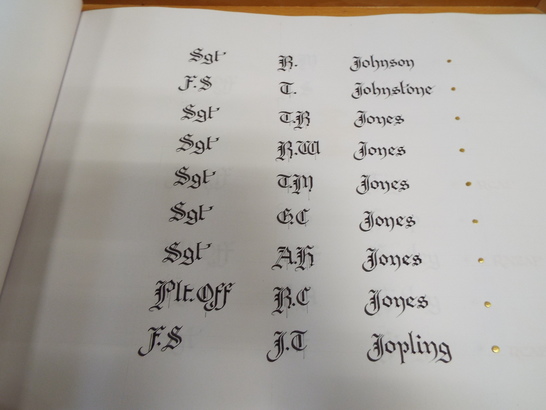 Sgt R. Johnson
F.S T. Johnstone
Sgt T.B Jones
Sgt R.W Jones
Sgt T.M Jones
Sgt G.C Jones
Sgt A.H Jones
Plt.Off R.C Jones
F.S J.T Jopling